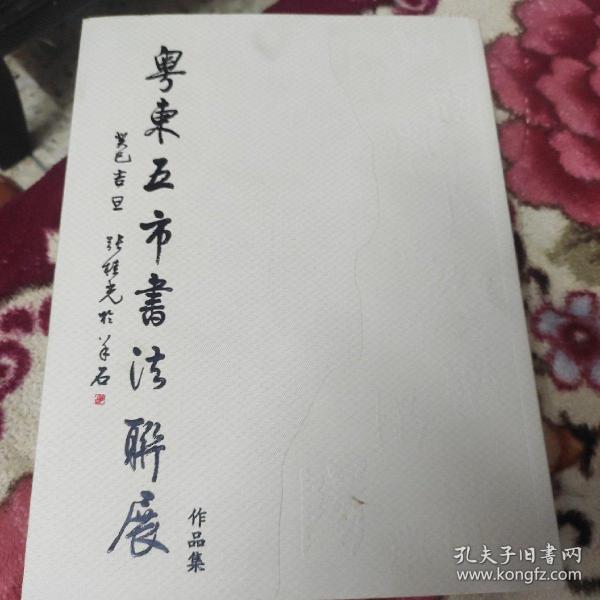 粤東五市書法聯展
癸巳吉旦 張桂光於羊石
作品集
孔夫子旧書网
www.kongfz.com